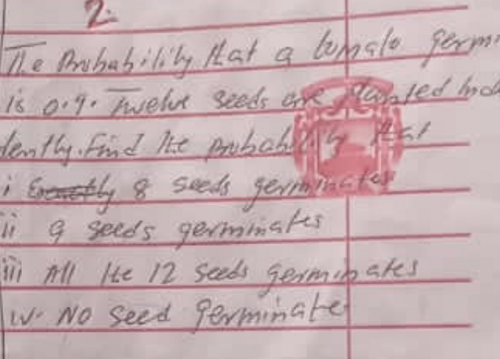 2.
The Probability that a tomato germi
is 0.9. Twelve seeds are planted Inde
dently. Find the probability that
i 8 seeds germinates
ii 9 seeds germinates
iii All the 12 seeds germinates
iv. NO seed germinate